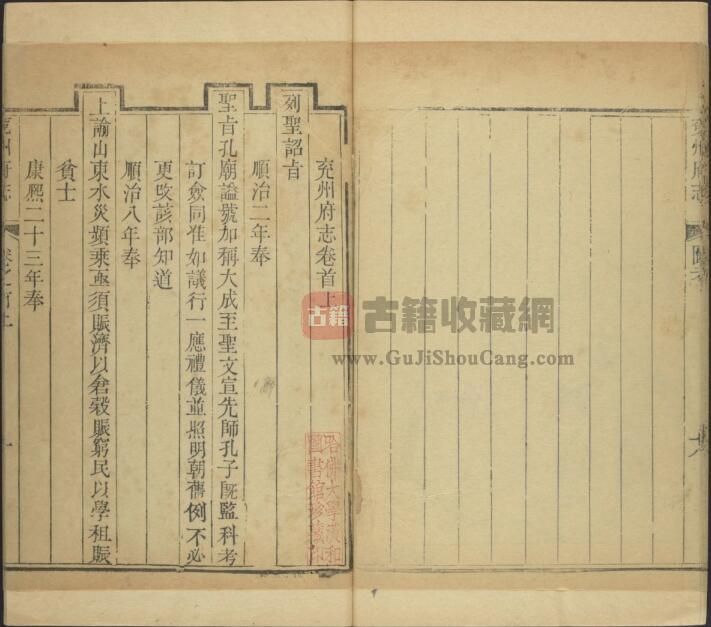 兗州府志卷首上
列聖詔旨
順治二年奉
聖旨孔廟謚號加稱大成至聖文宣先師孔子旣監科考
訂僉同准如議行一應禮儀並照明朝舊例不必
更改該部知道
順治八年奉
上諭山東水災頻乘亟須賑濟以倉穀賑窮民以學租賑
貧士
康熙二十三年奉
兗州府志
卷之首上
一
兗州府志
圖考
哈佛大學漢和
圖書館珍藏印
古籍
古籍收藏網
www.GuJiShouCang.com